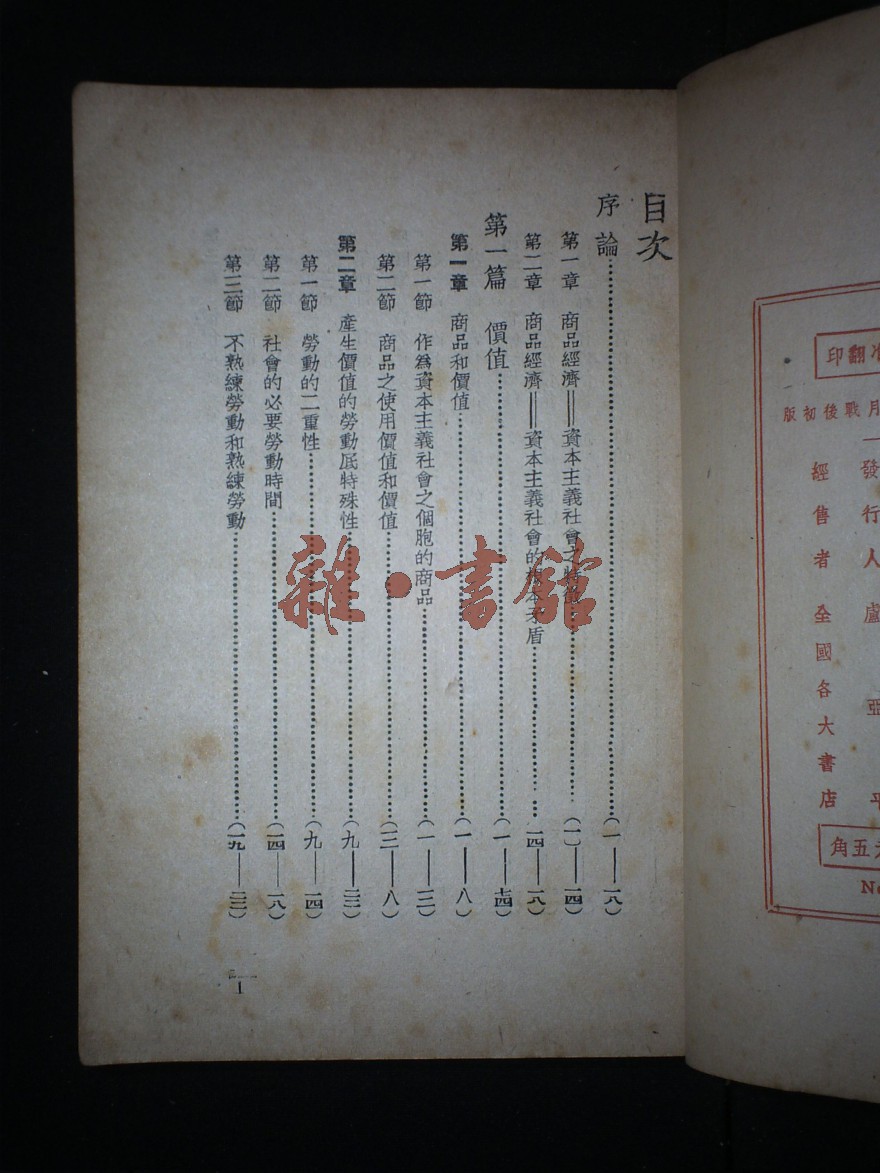 准翻印
月戰後初版
發行人 盧亞平
經售者 全國各大書店
五角
目次
序論……(一——一八)
第一章 商品經濟＝資本主義社會之特徵……(一)——一四
第二章 商品經濟＝資本主義社會的根本矛盾……一四——一八
第一篇 價值……(一——七四)
第一章 商品和價值……(一——八)
第一節 作為資本主義社會之個胞的商品……(一——三)
第二節 商品之使用價值和價值……(三——八)
第二章 產生價值的勞動底特殊性……(九——二三)
第一節 勞動的二重性……(九——一四)
第二節 社會的必要勞動時間……(一四——一八)
第三節 不熟練勞動和熟練勞動……(一九——二三)
1
雜·書館